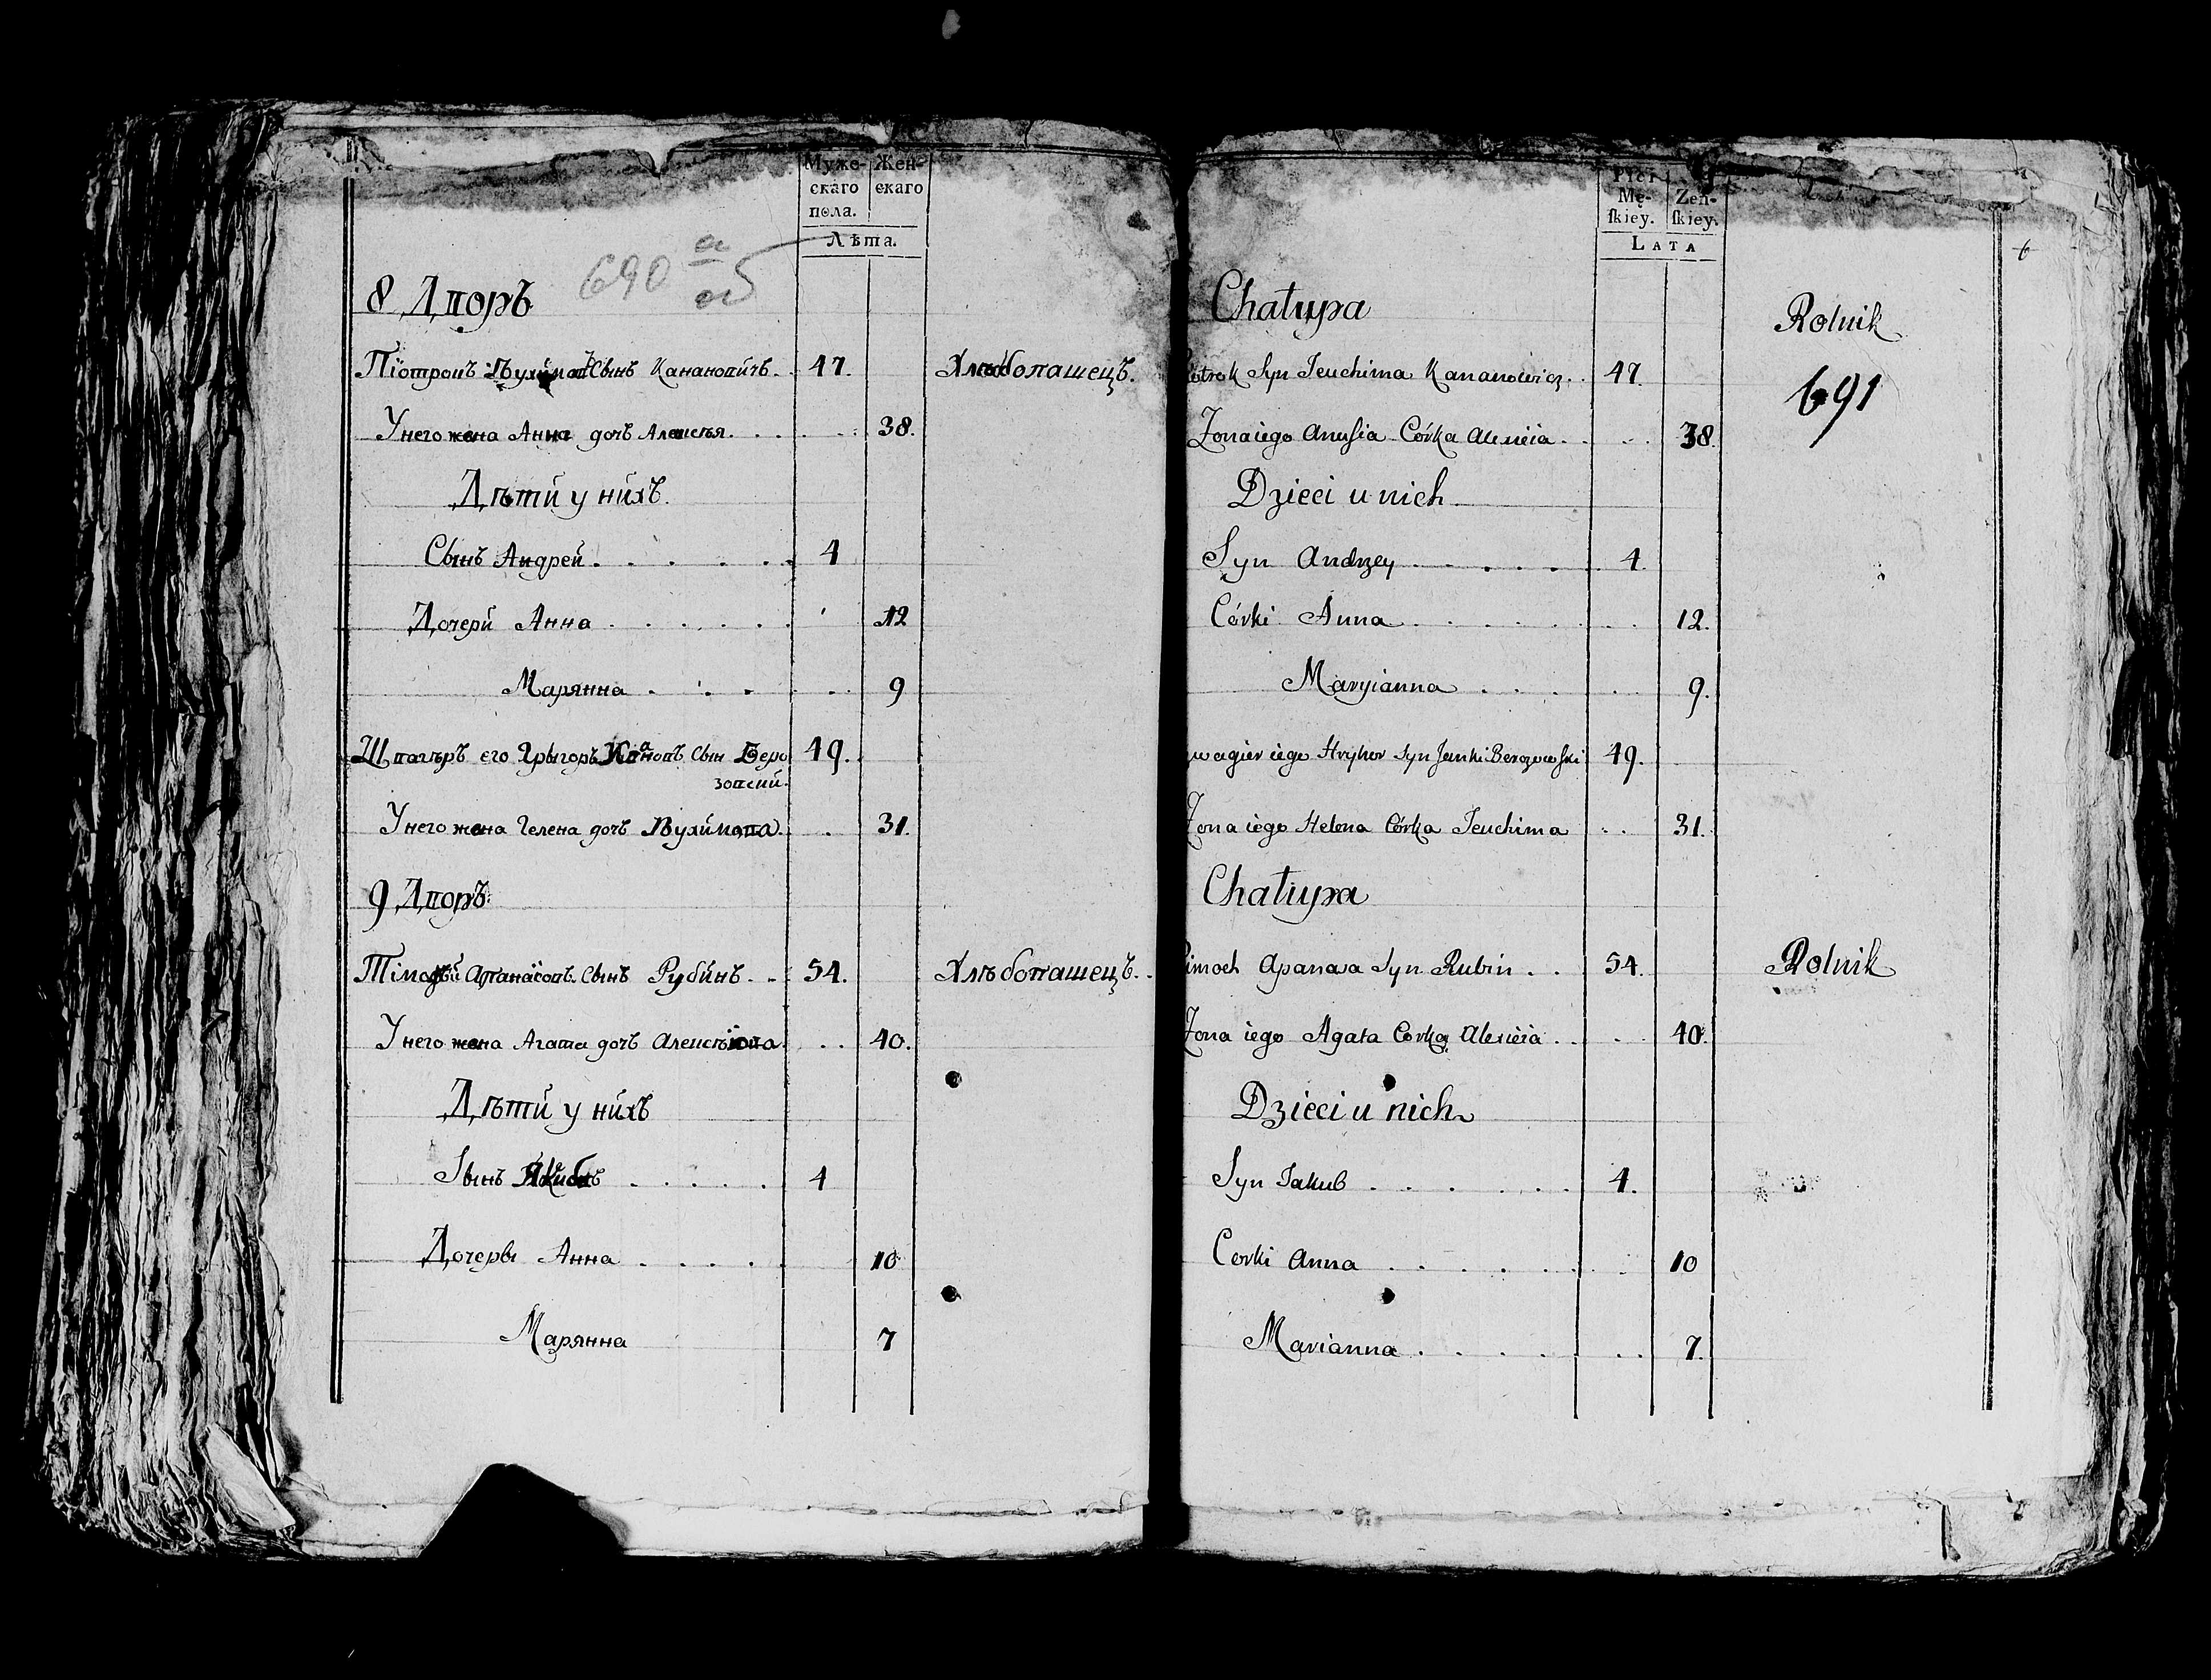 Муже-
скаго
пола.
Жен-
скаго
Лѣта.
690 а
об
8 Дворъ
Піотровъ Вухимовъ Сынъ Канановичъ. 47. Хлѣбопашецъ.
У него жена Анна дочь Алексѣя. . . . . 38.
Дѣти у нихъ.
Сынъ Андрей . . . . . 4
Дочери Анна . . . . . 12
Марянна . . . . . 9
Швагѣръ его Грыгоръ сын Беро 49.
зовский.
У него жена Гелена дочь Вухимова. . 31.
9 Дворъ
Тімофѣй Апанасовъ Сынъ Рубинъ . . 54. Хлѣбопашецъ. .
У него жена Агата дочь Алексѣіова. . . 40.
Дѣти у нихъ
Сынъ Якубъ . . . . . 4
Дочеры Анна . . . . 10
Марянна 7
Płci
Mę-
ſkiey.
Żeń-
ſkiey.
LATA
6
Chałupa Rolnik
Piotrok Syn Jeuchima Kananowicz. . 47.
691
Zona iego Anusia Córka Alexieia . . . . 38.
Dzieci u nich
Syn Andrzey . . . . . 4.
Córki Anna . . . . . . . 12.
Maryianna . . . . . 9.
Szwagier iego Hryhor Syn Janki Berozowski 49.
Zona iego Helena Córka Jeuchima . . 31.
Chałupa
Timoch Apanasa Syn Rubin . . 54. Rolnik
Zona iego Agata Corka Alexieia . . . . 40.
Dzieci u nich
Syn Jakub . . . . . . . 4.
Corki Anna . . . . . . . 10
Marianna . . . . . . . 7.